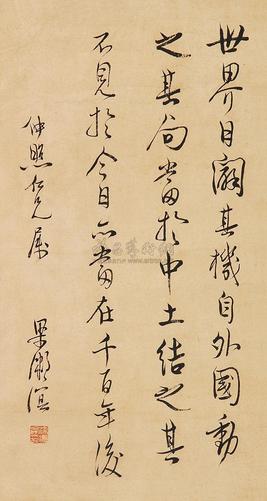 世界日闢其機自外國動
之其局當於中土結之其
不見於今日亦當在千百年後
仲照仁兄屬
梁漱溟